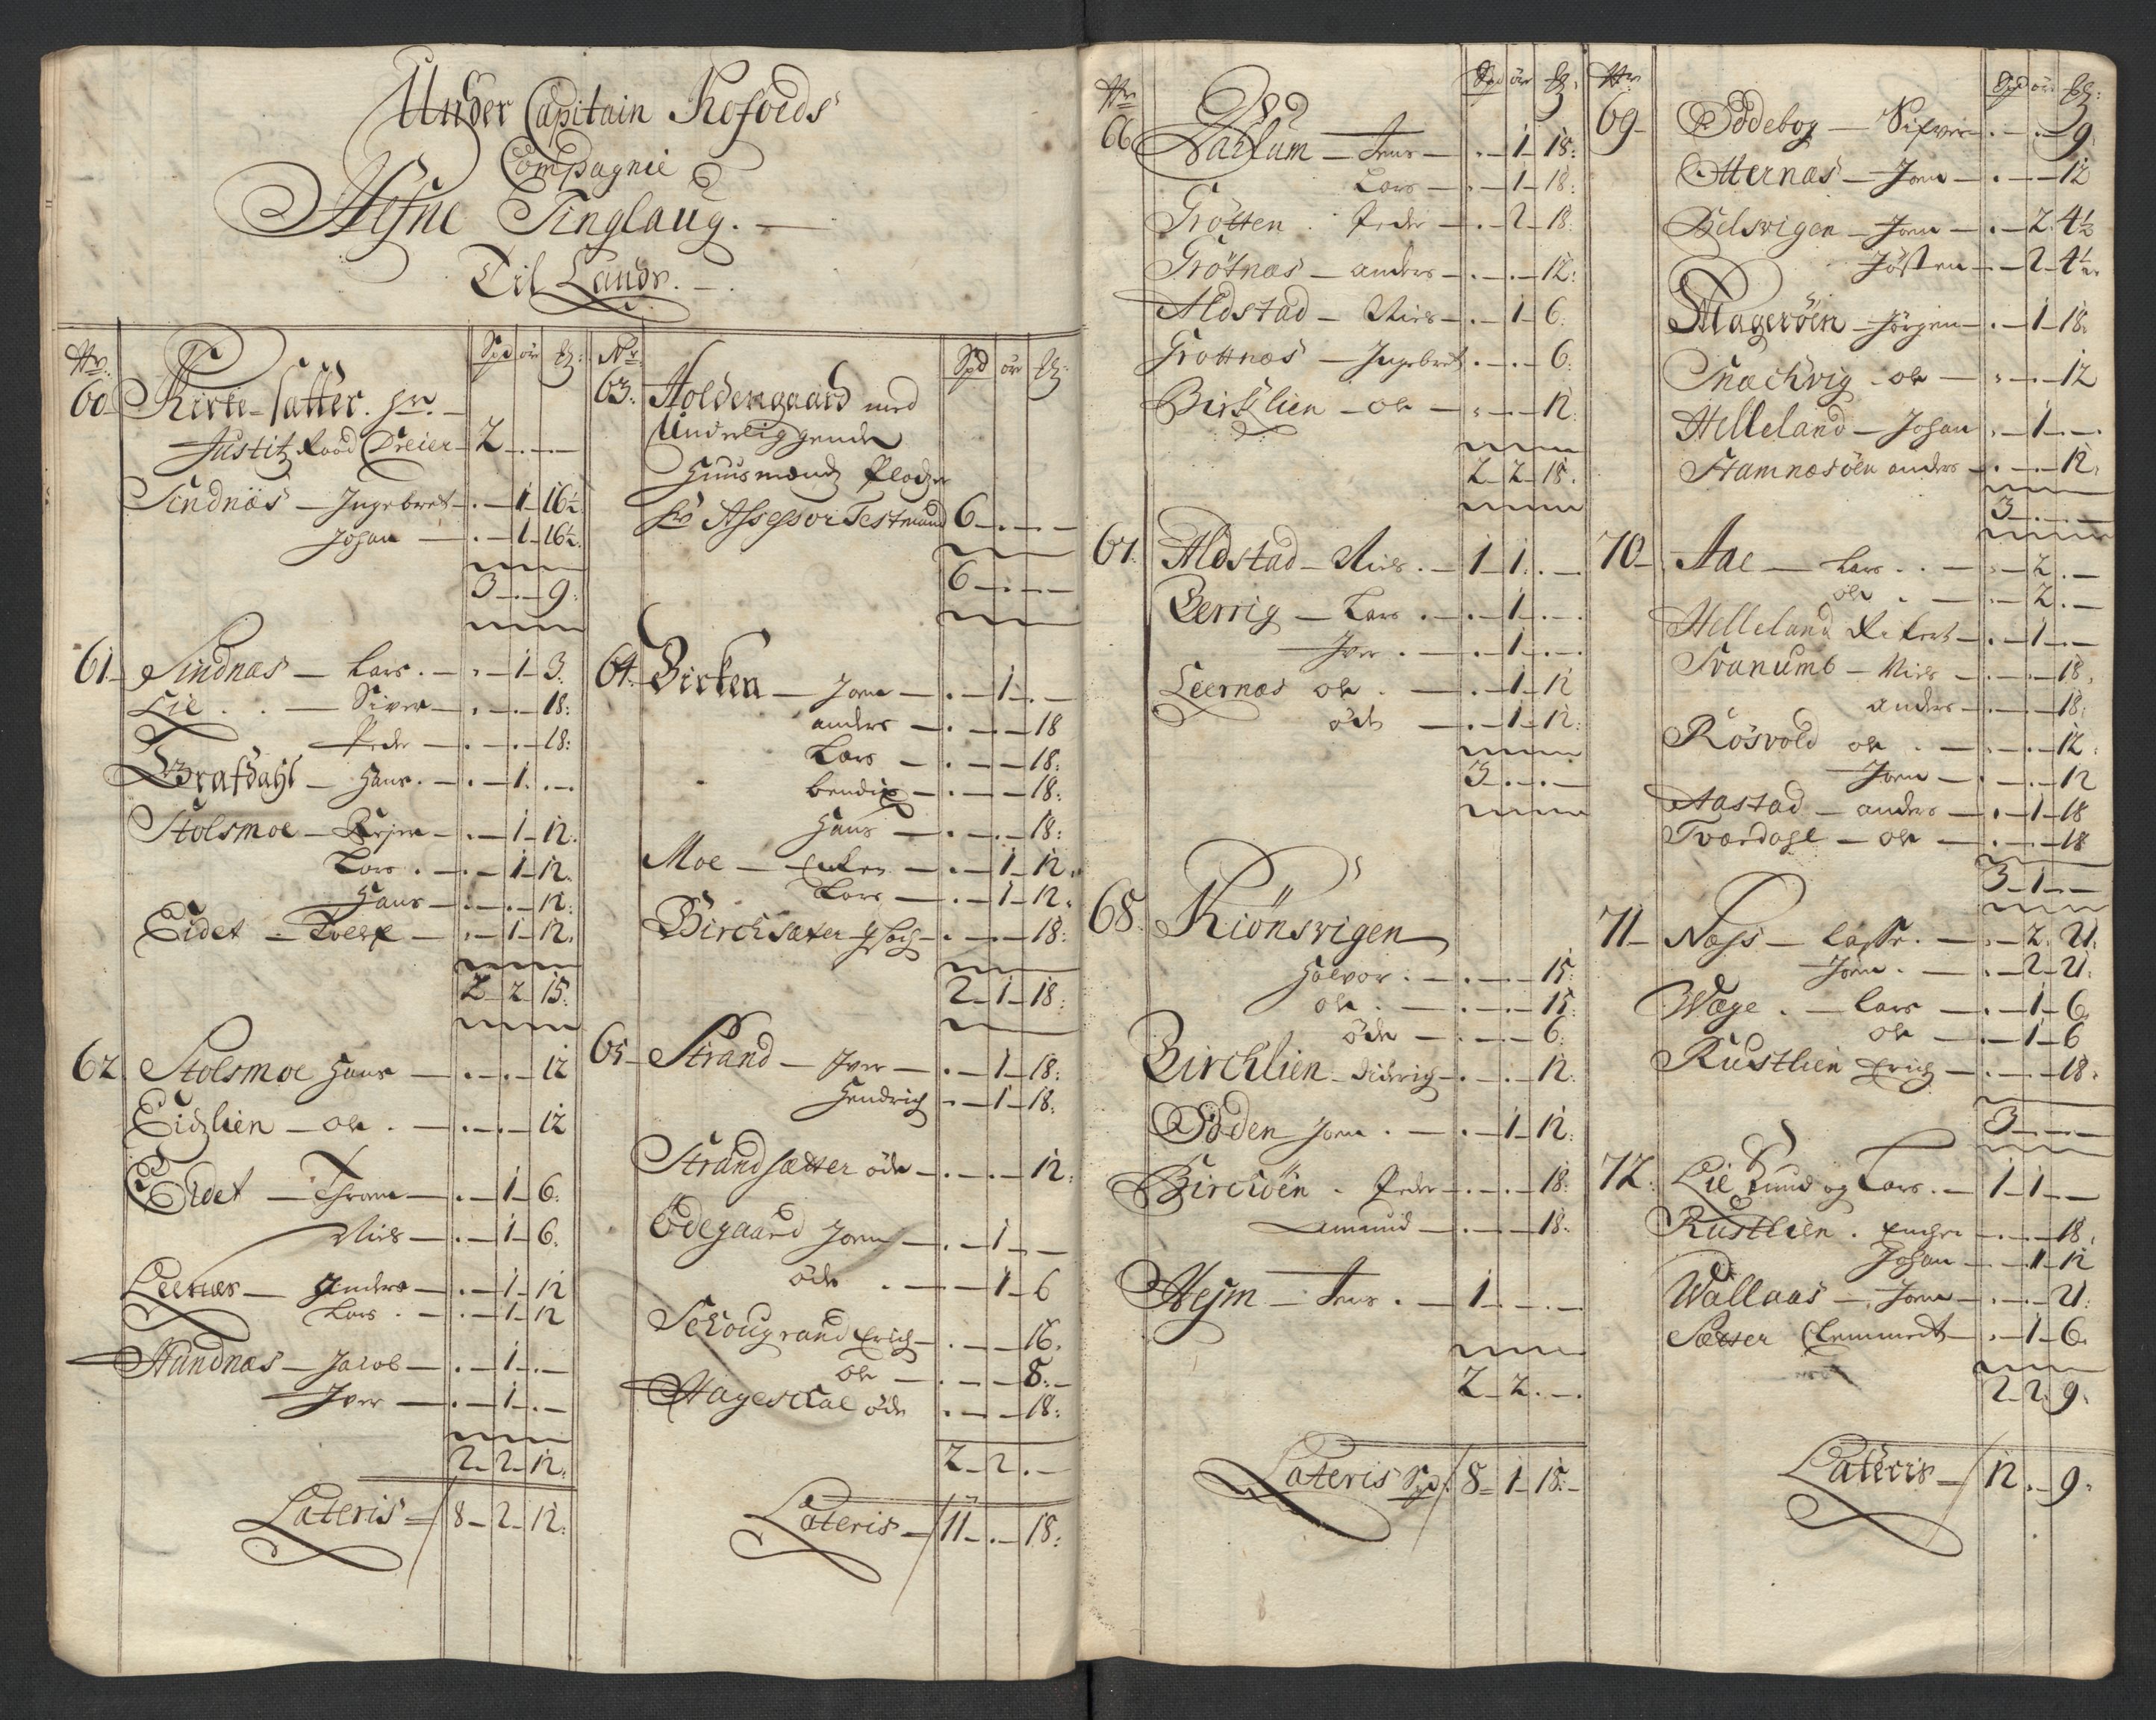 Under Capitain Kofoeds
Compagnie
Hefne Tinglaug.
Til Lands.
Nr. Spd ör Mz:
60 Kirke-Sætter. hr.
Justitz Raad Dreier 2 . .
Sindnäs Ingebret . 1 16½
Johan . 1 16½
3 . 9:
61 Sindnæs Lars . 1 3.
Lie Siver . . 18:
Peder . . 18:
Grafdahl Hans . 1 .
Stolsmoe . 1 12.
Lars . 1 12.
Hans . . 12:
Eidet . 1 12.
2 2 15:
62. Stolsmoe Hans . . 12
Eidzlien ole . . 12
Eidet . 1 6:
Niels . 1 6.
Leernes Anders . 1 12
Lars . 1 12
Hundnæs Jacob . 1 .
Jver . 1 .
2 2 12.
Lateris 8 2 12:
Nr. Spd ör Mz:
63. Holdengaard med
Underliggende
Huusmændz Pladzer
Assessor Testmand 6 . .
6 . .
64. Birken Joen . 1 .
anders . . 18
Lars . . 18:
bendix . . 18:
Hans . . 18:
Moe Enken . 1 12.
Lars . 1 12.
Birchsæter . . 18:
2 1 18:
65 Strand Jver . 1 18:
Hendrich . 1 18.
Strandsætter öde . . 12:
Ödegaard Joen . 1 .
öde . 1 6
Schougrand Erich . . 16.
ole . . 8.
Hageschal öde . . 18:
2 2 .
Lateris 11 . 18:
Nr. Spd ör Mz:
66 Jens . 1 18:
Lars . 1 18:
Grötten Peder . 2 18.
Grötnæs anders . . 12:
Aldstad Niels . 1 6.
Grottnæs Ingebret . . 6:
Birchlien ole . . 12:
2 2 18.
67. Aldstad Niels 1 1 .
Berrig Lars . 1 .
Jver . 1 .
Leernæs ole . 1 12
öde . 1 12:
3 . .
68. Kiönsvigen
Halvor . . 15:
ole . . 15:
öde . . 6:
Birchlien Didrig . . 12:
Göden Joen . 1 12:
Birchöen Peder . . 18:
Amund . . 18:
Hejm Jens 1 . .
2 2 .
Lateris Spd 8 1 18.
Nr. Spd ör Mz:
69 Ödebog Sifver . . 9.
Otternæs Joen . . 12
Belsvigen Joen . 2 4½
Jösten . 2 4½
Mageröen Jörgen . 1 18.
Snachvig ole . . 12
Helleland Johan . 1 .
Hamnæsöen anders . . 12.
3 . .
70 Aae Lars . 2 .
ole . 2 .
Helleland . 1 .
Svanumb Niels . . 18.
anders . . 18:
Rösvold ole . . 12.
Joen . . 12
Aastad anders . 1 18
Tværdahl ole . . 18
3 1 .
71 Næss Lasse . 2 21.
Joen . 2 21.
Wæge Lars . 1 6.
ole . 1 6
Rustlien Erich . . 18.
3 . .
72. Lie Knud og Lars 1 1 .
Rustlien . . 18.
Johan . 1 12
Wallaas Joen . . 21.
Sætter Clemmet . 1 6.
2 2 9.
Lateris 12 . 9.